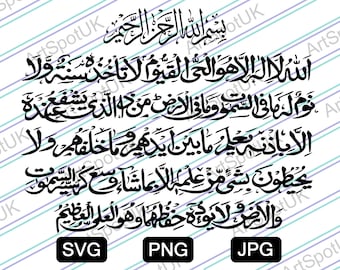 بسم الله الرحمن الرحيم
الله لا اله الا هو الحي القيوم لا تأخذه سنة ولا
نوم له ما في السموات وما في الارض من ذا الذي يشفع عنده
الا باذنه يعلم ما بين ايديهم وما خلفهم ولا
يحيطون بشيء من علمه الا بما شاء وسع كرسيه السموات
والارض ولا يؤده حفظهما وهو العلي العظيم
SVG PNG JPG
ArtSpotUK